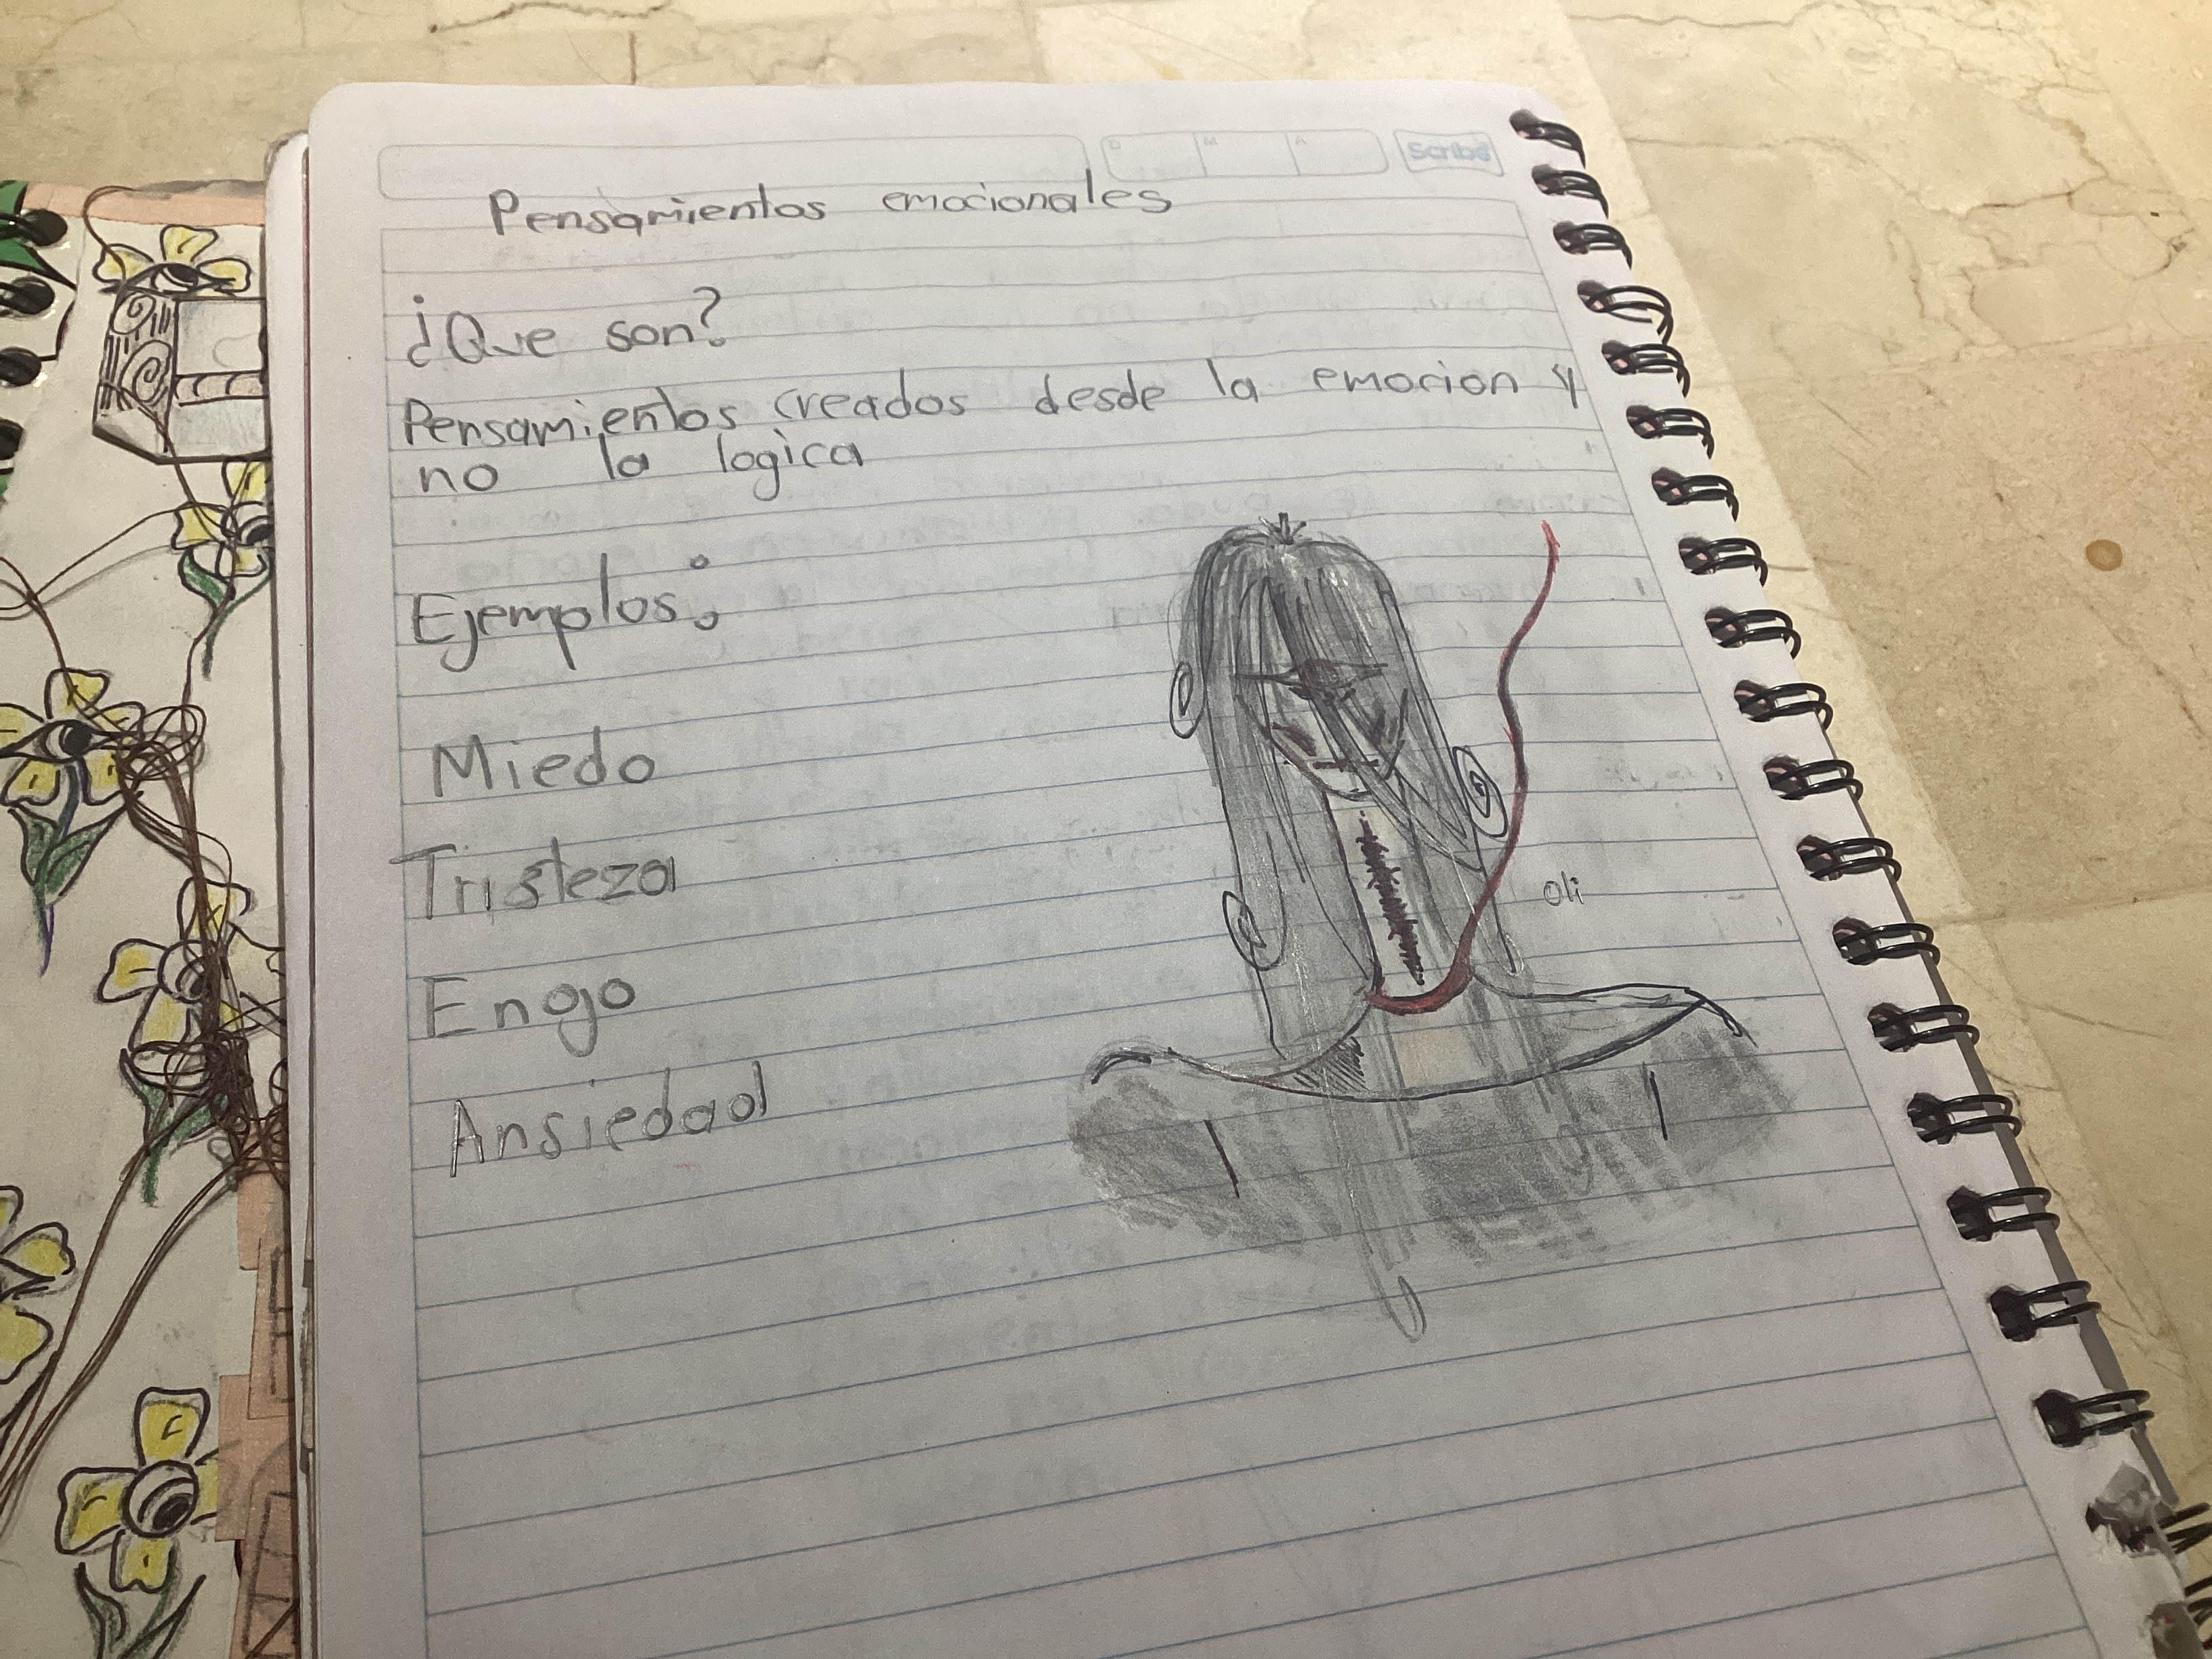 Scribe
D M A
Pensamientos emocionales
¿Que son?
Pensamientos creados desde la emocion y
no la logica
Ejemplos:
Miedo
Tristeza
Enojo
Ansiedad
oli